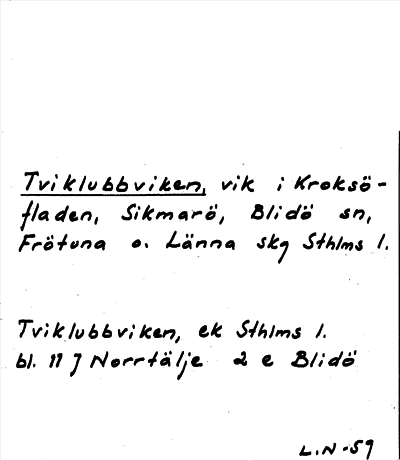 Tviklubbviken, vik i Kroksö-
fladen, Sikmarö, Blidö sn,
Frötuna o. Länna skg Sthlms l.
Tviklubbviken, ek Sthlms l.
bl. 11 J Norrtälje 2 e Blidö
L.N-59